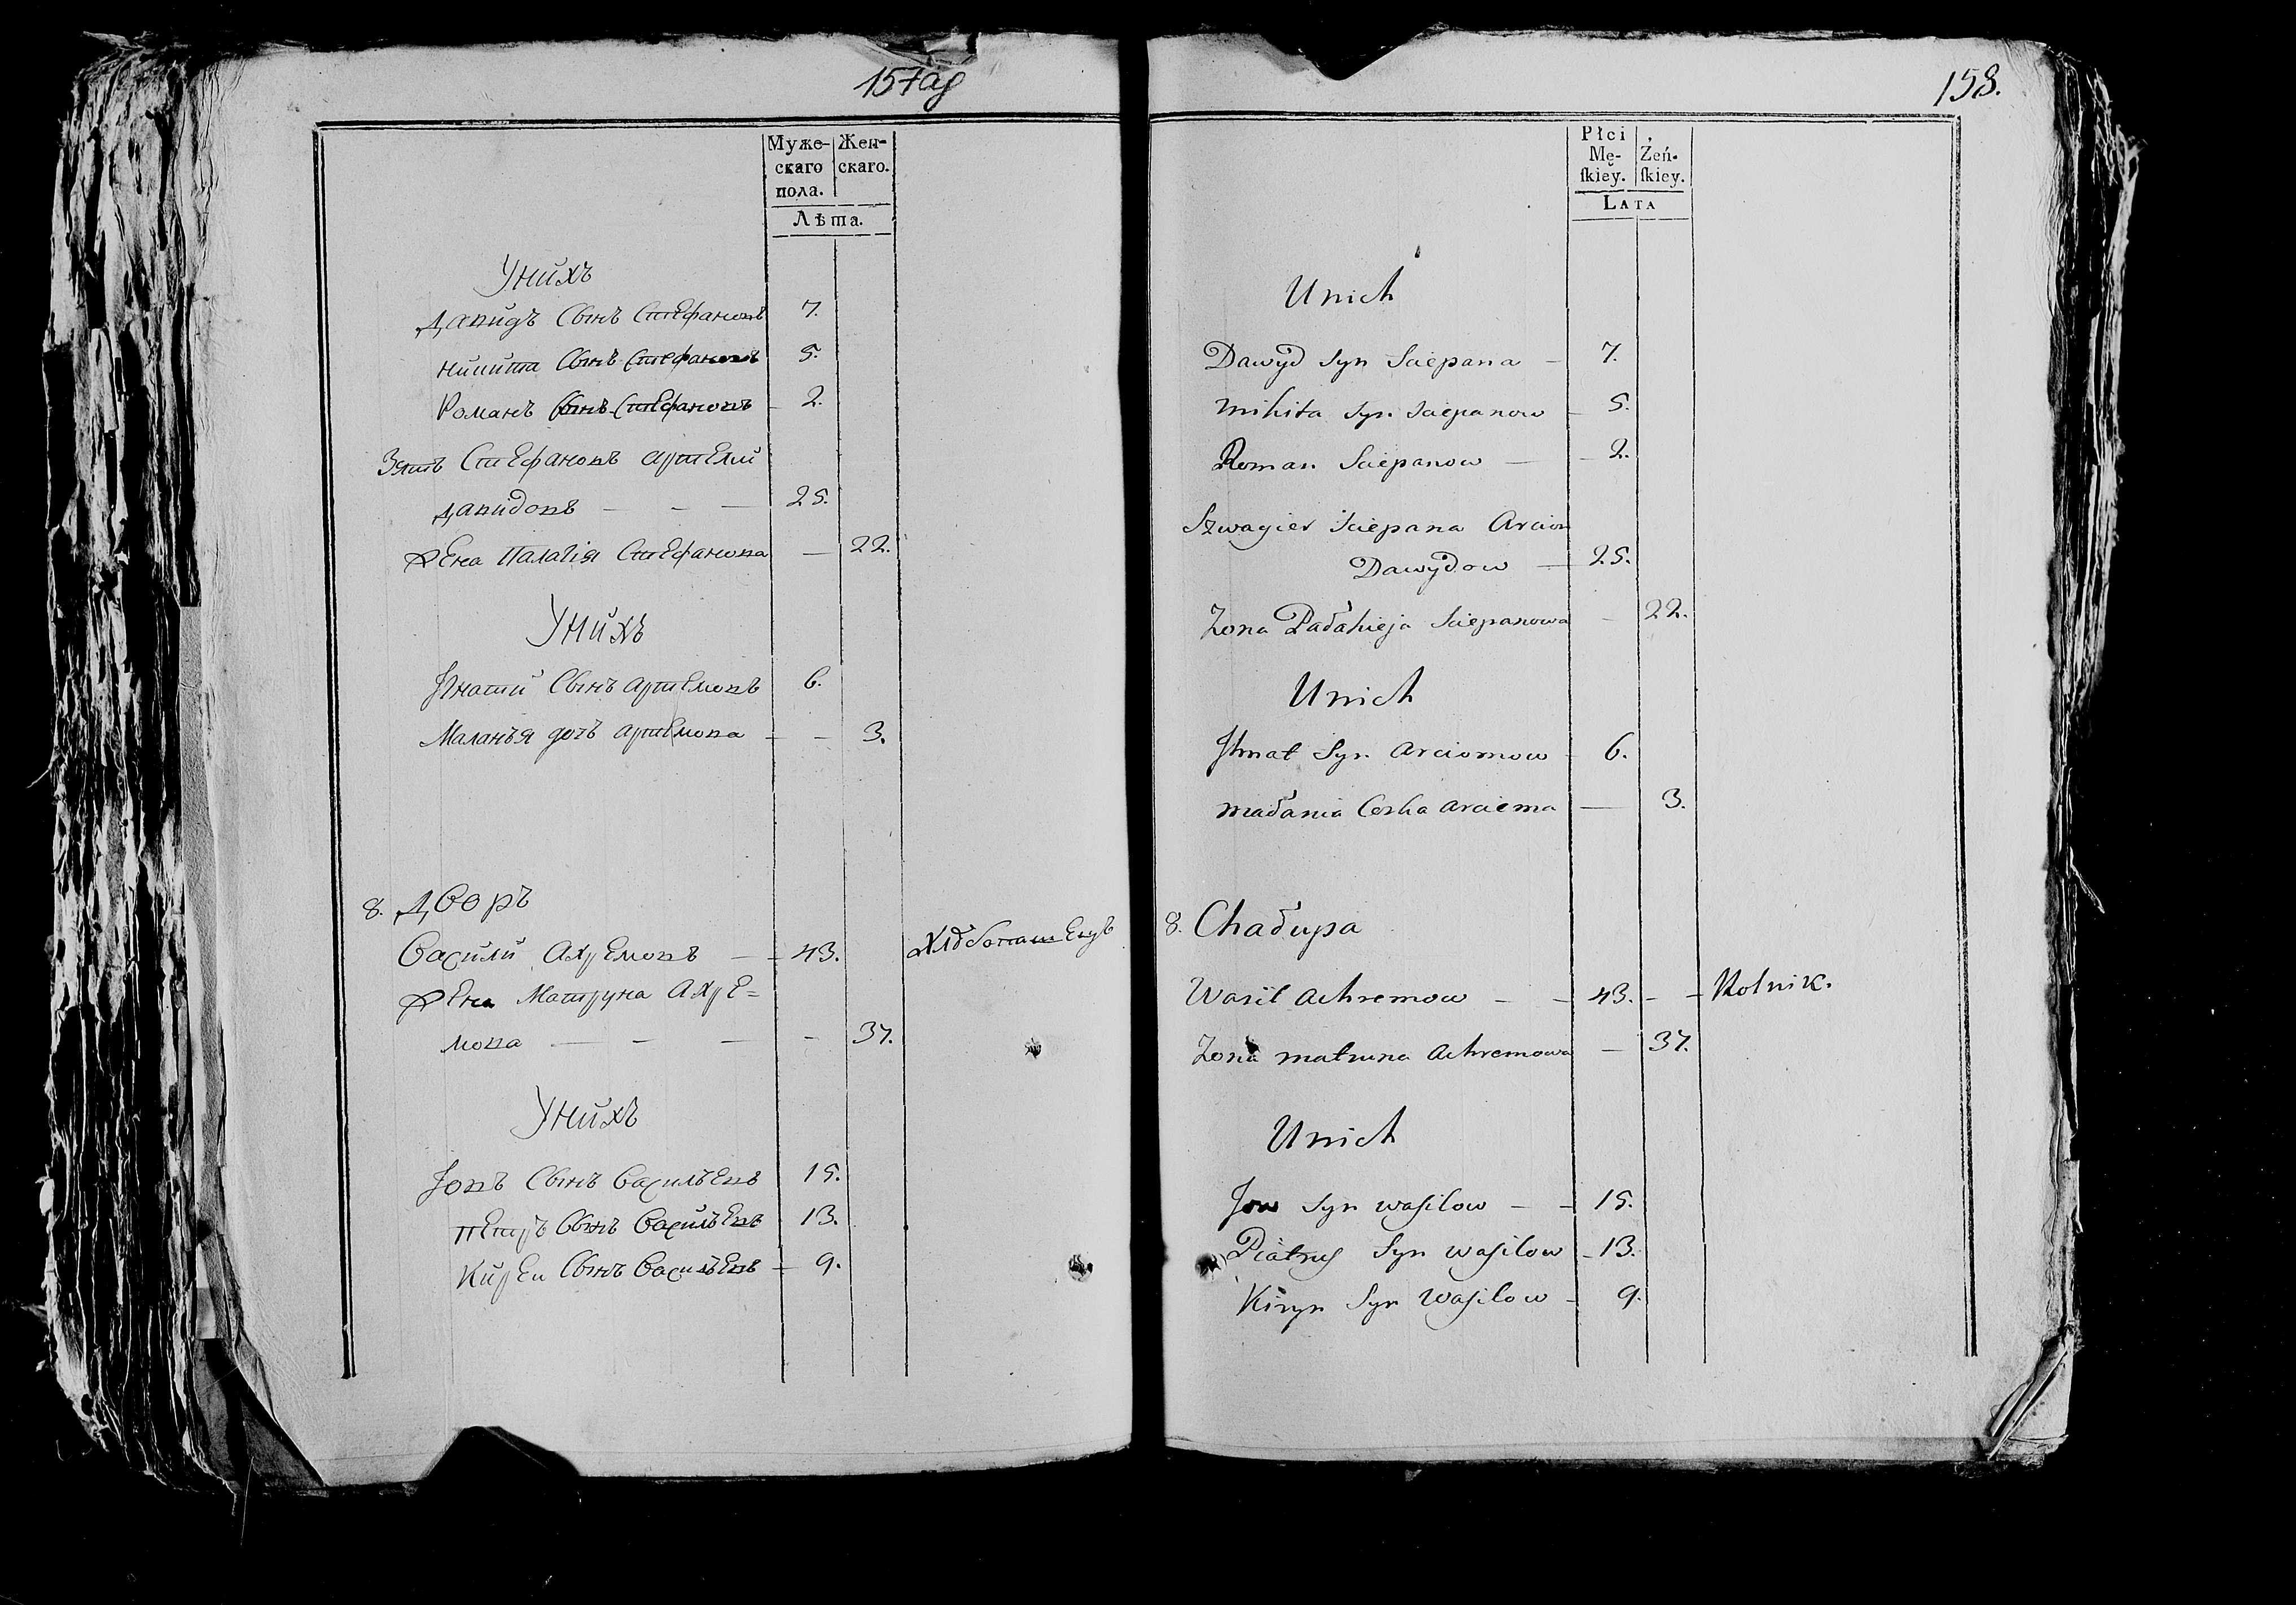 157об
Муже-
скаго
пола.
Жен-
скаго.
Лѣта.
Унихъ
Давидъ Сынъ Стефановъ 7.
Никита Сынъ Стефановъ 5.
Романъ Сынъ Стефановъ - 2.
Зять Стефановъ Артеми
Давидовъ - - - 25.
Жена Палагія Стефанова - 22.
Унихъ
Игнати Сынъ Артемовъ 6.
Маланья дочь Артемова - - 3.
8. Дворъ
Василй Ахремовъ - - 43. Хлѣбопашецъ
Жена Матруна Ахре=
мова - - - - 37.
Унихъ
Іовъ Сынъ Васильевъ 15.
Петръ Сынъ Васильевъ 13.
Киреи Сынъ Васильевъ - 9.
158.
Płci
Mę-
skiey.
Żeń-
skiey.
Lata
Unich
Dawyd Syn Sciepana - 7.
Mikita Syn Sciepanow - 5.
Roman Sciepanow - - 2.
Szwagier Sciepana Arciom
Dawydow - 25.
Zona Pałahieja Sciepanowa - 22.
Unich
Ihnat Syn Arciomow - 6.
Małania Corka Arciema - 3.
8. Chałupa
Wasil Achremow - - 43. - - Rolnik.
Zona Matruna Achremowa - 37.
Unich
Jow Syn Wasilow - - 15.
Piatrus Syn Wasilow - 13.
Kiryn Syn Wasilow - 9.